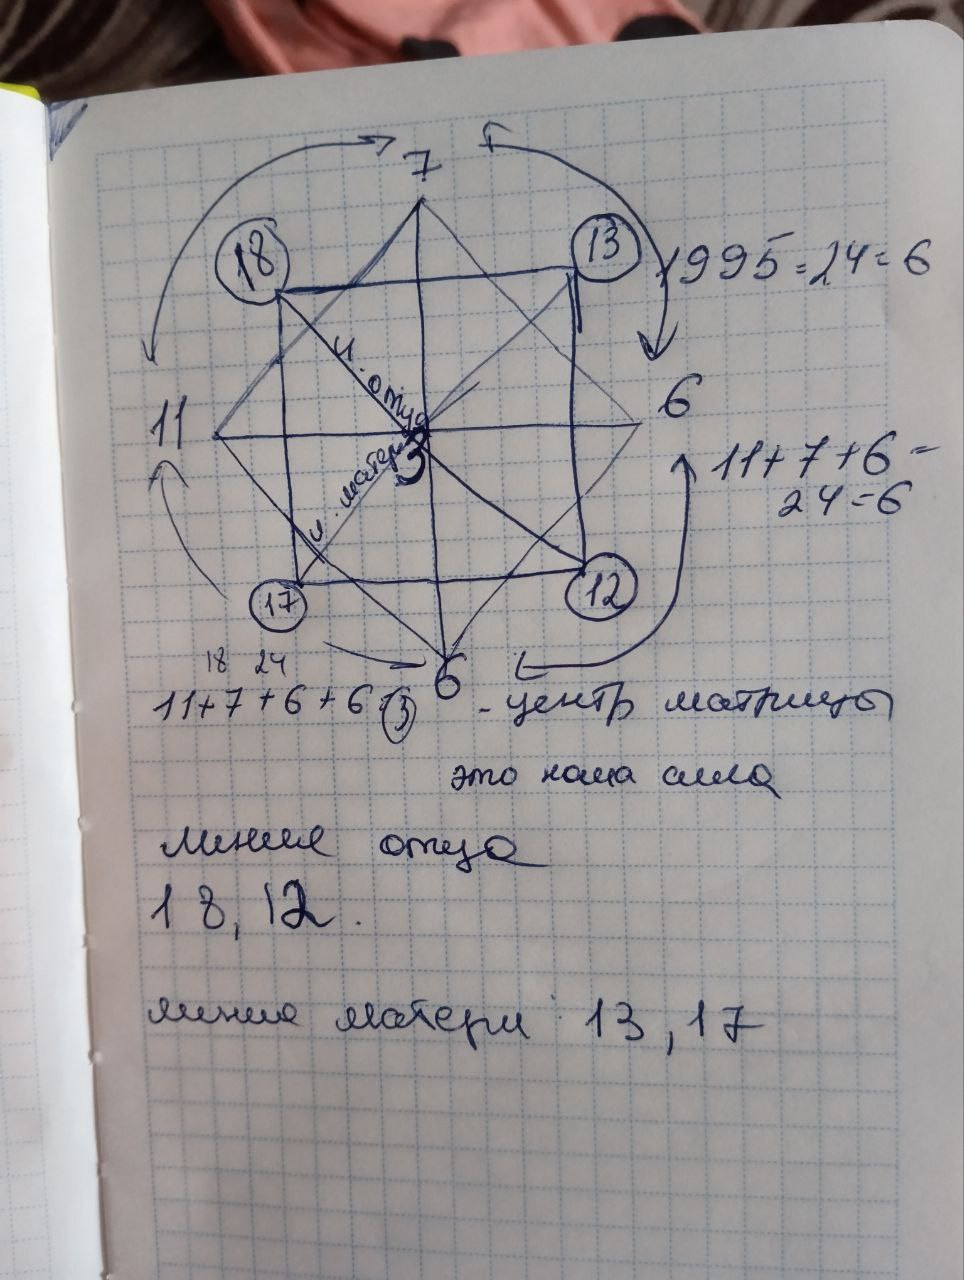 7
18
13
1995=24=6
л. отца
11
6
3
л. матери
11+7+6=
24=6
17
12
18 24
11+7+6+6 (3)
6 - центр матрицы
это наша сила
линия отца
18, 12.
линия матери: 13, 17